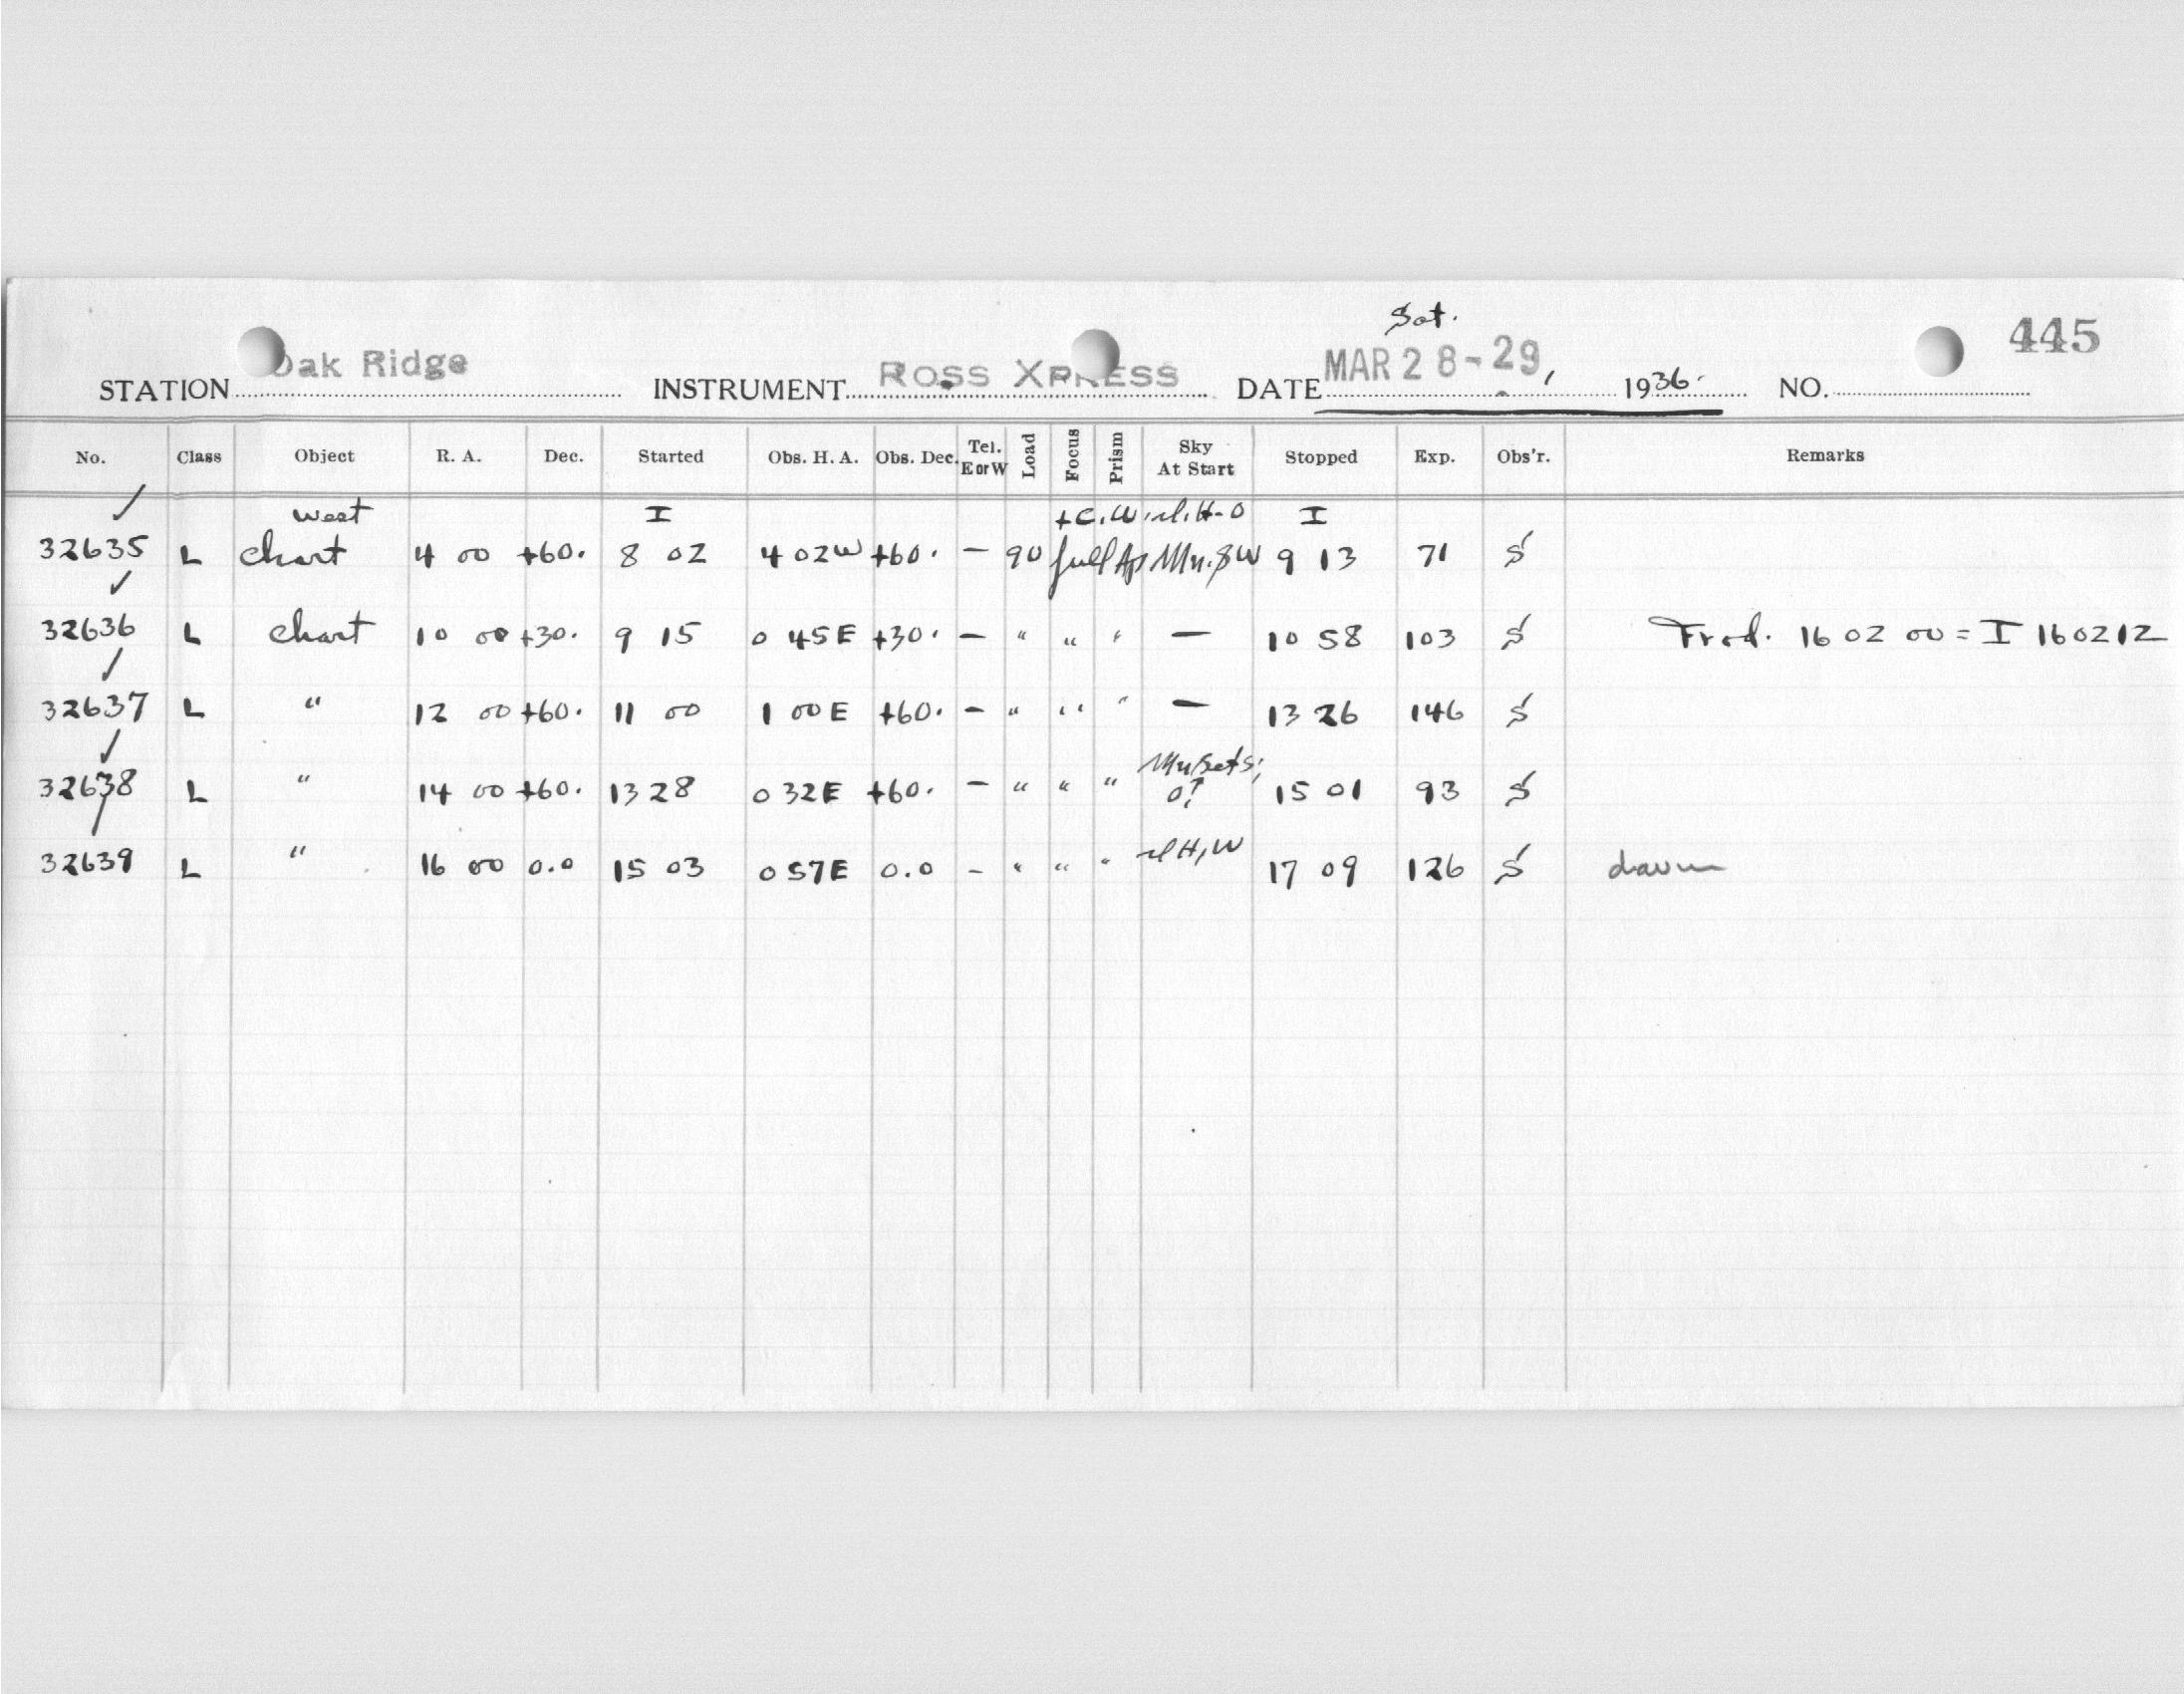 Sat.
STATION Oak Ridge INSTRUMENT ROSS XPRESS DATE MAR 28-29, 1936. NO. 445
No. Class Object R. A. Dec. Started Obs. H. A. Obs. Dec. Tel. E or W Load Focus Prism Sky At Start Stopped Exp. Obs'r. Remarks
West I I
32635 L Chart 4 00 +60. 8 02 4 02W +60. - 90 full Ap Mn. SW 9 13 71 S
32636 L Chart 10 00 +30. 9 15 0 45E +30. - " " " - 10 58 103 S Frod. 16 02 00 = I 16 02 12
32637 L " 12 00 +60. 11 00 1 00E +60. - " " " - 13 26 146 S
32638 L " 14 00 +60. 13 28 0 32E +60. - " " " Mn sets; 0? 15 01 93 S
32639 L " 16 00 0.0 15 03 0 57E 0.0 - " " " H, W 17 09 126 S dawn